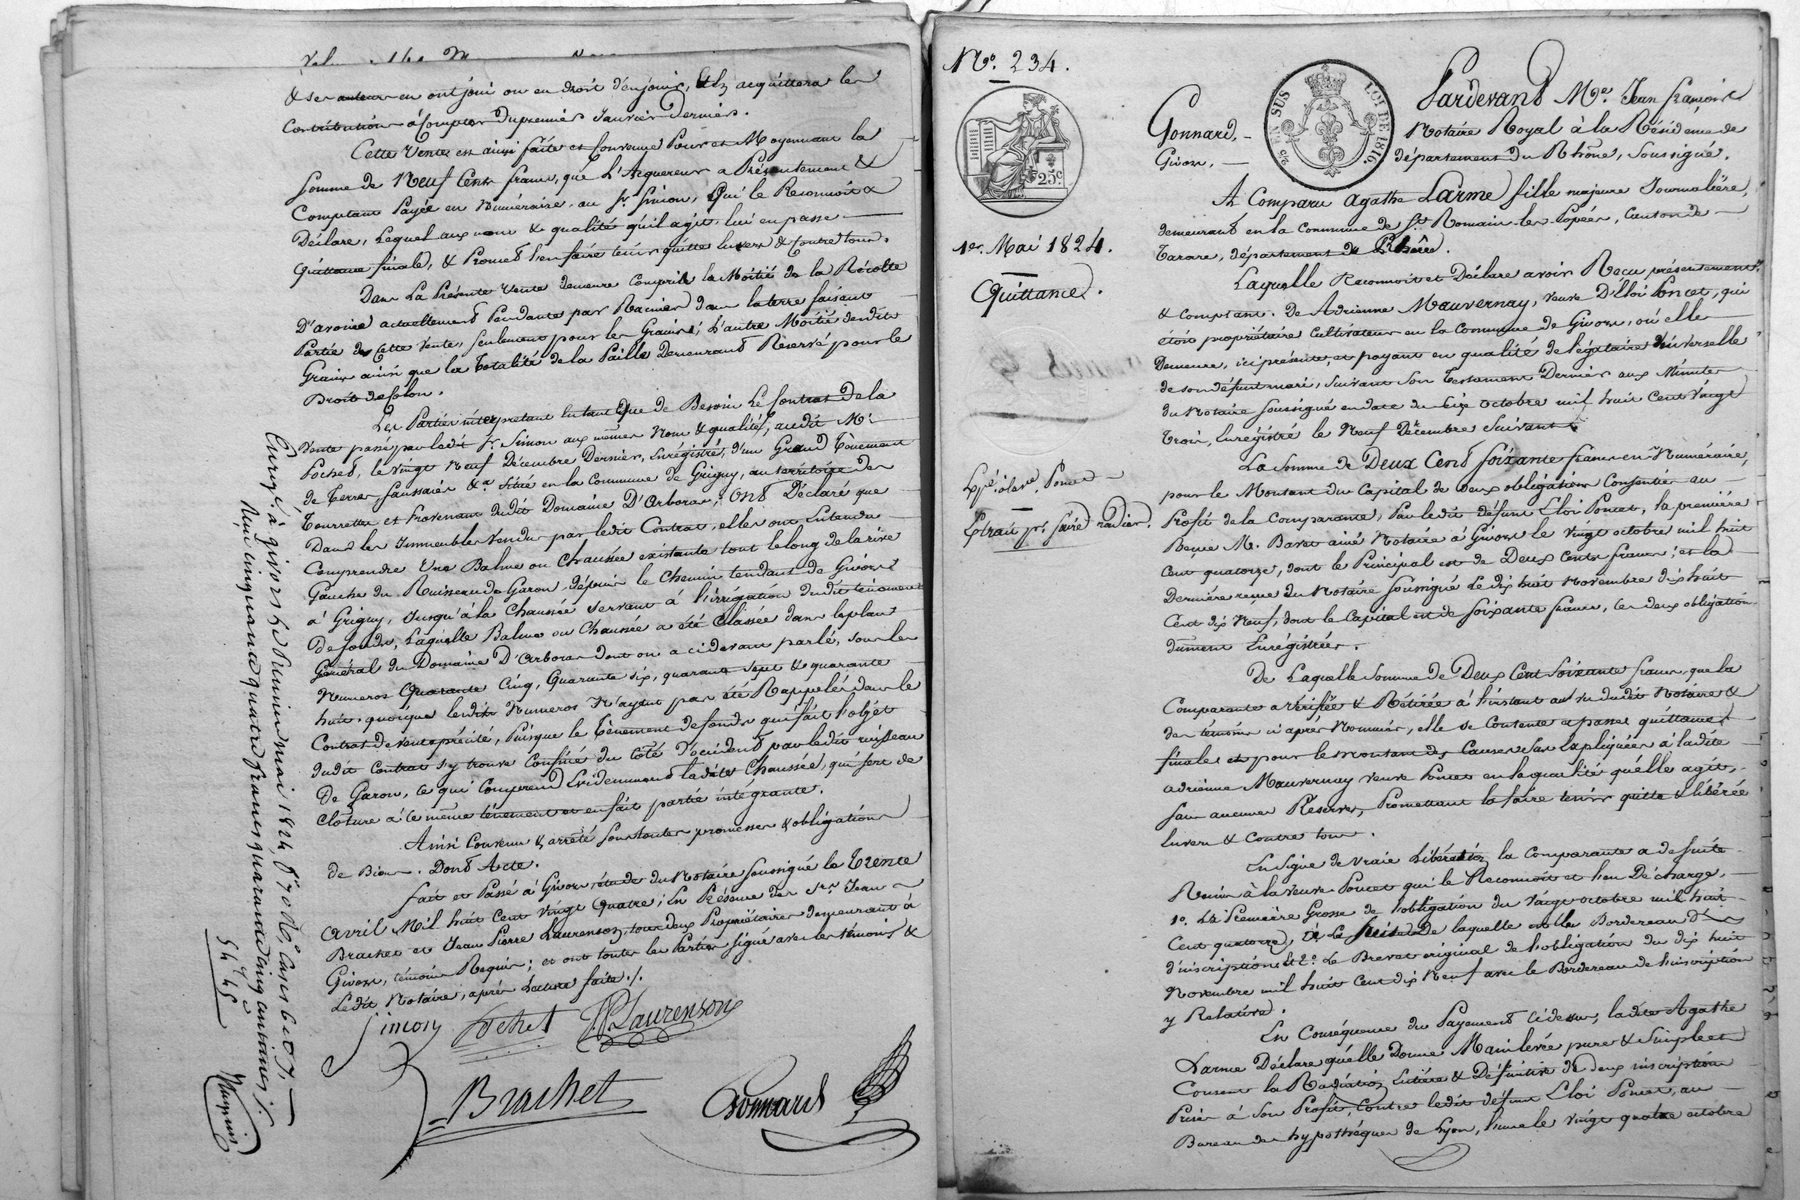 & ses auteurs en ont joui ou en droit d'en jouir, Et Il acquittera les
Contributions à Compter du premier Janvier Dernier.
Cette Vente est ainsi faite et Convenue Pour et Moyennant la
Somme de Neuf Cents francs, que L'Acquéreur a Présentement &
Comptant Payée en Numéraire, au Sr. Simon, Qui le Reconnoit &
Déclare, Lequel aux nom & qualité qu'il agit, lui en passe
Quittance finale, & Promet l'en faire tenir quitte Envers & Contre tous.
Dans La Présente Vente demeure Comprise la Moitié de la Récolte
D'avoine actuellement Pendante par Racines dans la terre faisant
Partie de Cette Vente, Seulement pour les Grains; L'autre Moitié desdits
Grains ainsi que la Totalité de la Paille Demeurant Réservé pour le
Droit de Colon.
Les Parties interprétant En tant Que de Besoin Le Contrat de la
Vente passé par ledit Sr. Simon aux mêmes Nom & qualité, audit Mr.
Pochet, le vingt Neuf Décembre Dernier, Enrégistré, d'un Grand Tènement
de Terres Saussaies &a. Situé en la Commune de Grigny, au territoire des
Tourrettes et Provenant dudit Domaine D'Arboras; Ont Déclaré que
Dans les Immeubles Vendus par ledit Contrat, elles ont Entendu
Comprendre Une Balme ou Chaussée existante tout le long de la rive
Gauche du Ruisseau de Garon, depuis le Chemin tendant de Givors
à Grigny, Jusqu'à la Chaussée servant à l'irrigation dudit tènement
De fonds, Laquelle Balme ou Chaussée a été Classée dans le plan
Général du Domaine D'Arboras dont on a ci devant parlé, sous les
Numéros Quarante Cinq, Quarante six, quarante sept & quarante
huit, quoique lesdits Numéros N'ayent pas été Rappelés dans le
Contrat de Vente précité, Puisque le Tènement de fonds qui fait l'objet
dudit Contrat s'y trouve Confiné du Côté D'occident par ledit ruisseau
De Garon, ce qui Comprend Evidemment ladite Chaussée, qui sert de
Cloture à ce même tènement et en fait partie intégrante.
Ainsi Convenu & arrêté sous toutes promesses & obligations
de Biens. Dont Acte.
Fait et Passé à Givors, étude du Notaire Soussigné le Trente
Avril Mil huit Cent Vingt Quatre; En Présence des Srs. Jean
Brachet et Jean Pierre Laurenson, tous deux Propriétaires demeurant à
Givors, témoins Requis; et ont toutes les Parties signé avec les témoins &
Ledit Notaire, après Lecture faite ./.
Simon Pochet JP Laurenson
Brachet Gonnard
Enregé. à givors le Premier mai 1824
Reçu Cinquante quatre francs quarante Cinq Centimes ./.
54,,45
No. 234.
EN SUS
LOI DE 1816.
25c
1er. Mai 1824.
Quittance.
Extrait pr. faire radier.
Pardevant Me. Jean François
Gonnard, Notaire Royal à la Résidence de
Givors, département du Rhône, Soussigné.
A Comparu Agathe Larme fille majeure Journalière,
demeurant en la Commune de St. Romain-les-Popées, Canton de
Tarare, département du Rhône.
Laquelle Reconnoit et Déclare avoir Reçu présentement
& Comptant. De Adrienne Mauvernay, veuve D'Eloi Poncet, qui
étoit propriétaire Cultivateur en la Commune de Givors, où elle
Demeure, ici présente et payant en qualité de légataire Universelle
de son défunt mari, Suivant Son Testament Dernier aux Minutes
du Notaire Soussigné en date du Six octobre mil huit Cent Vingt
Trois, Enregistré le Neuf Décembre Suivant.
La Somme de Deux Cent Soixante francs en Numéraire,
pour le Montant du Capital de deux obligations Consenties au
Profit de la Comparante, Par ledit défunt Eloi Poncet, la première
Reçue Me. Baret ainé Notaire à Givors le Vingt octobre mil huit
Cent quatorze, dont le Principal est de Deux Cents francs; et la
Dernière reçue du Notaire Soussigné Le dix huit Novembre dix huit
Cent dix Neuf, dont le Capital est de Soixante francs, les deux obligations
dûment Enrégistrées.
De Laquelle Somme de Deux Cent Soixante francs, que la
Comparante a vérifiée & Retirée à l'instant au vu dudit Notaire &
des témoins ci après Nommés, elle se Contente et passe quittance
finale et pour le montant des Causes Sus Expliquées à ladite
Adrienne Mauvernay veuve Poncet en la qualité qu'elle agit,
Sans aucunes Réserves, Promettant la faire tenir quitte & libérée
Envers & Contre tous.
En Signe de vraie Libération, la Comparante a de Suite
Remis à la veuve Poncet qui le Reconnoit et l'en Décharge,
1o. La Première Grosse de l'obligation du Vingt octobre mil huit
Cent quatorze, à la Suite de laquelle est le Bordereau
d'inscription Et 2o. Le Brevet original de l'obligation du dix huit
Novembre mil huit Cent dix Neuf avec le Bordereau de l'inscription
y Relative.
En Conséquence du Payement Ci dessus, ladite Agathe
Larme Déclare qu'elle Donne Mainlevée pure & Simple et
Consent la Radiation Entière & Définitive De deux inscriptions
Prises à Son Profit, Contre ledit défunt Eloi Poncet, au
Bureau des hypothèques de Lyon, l'une le vingt quatre octobre